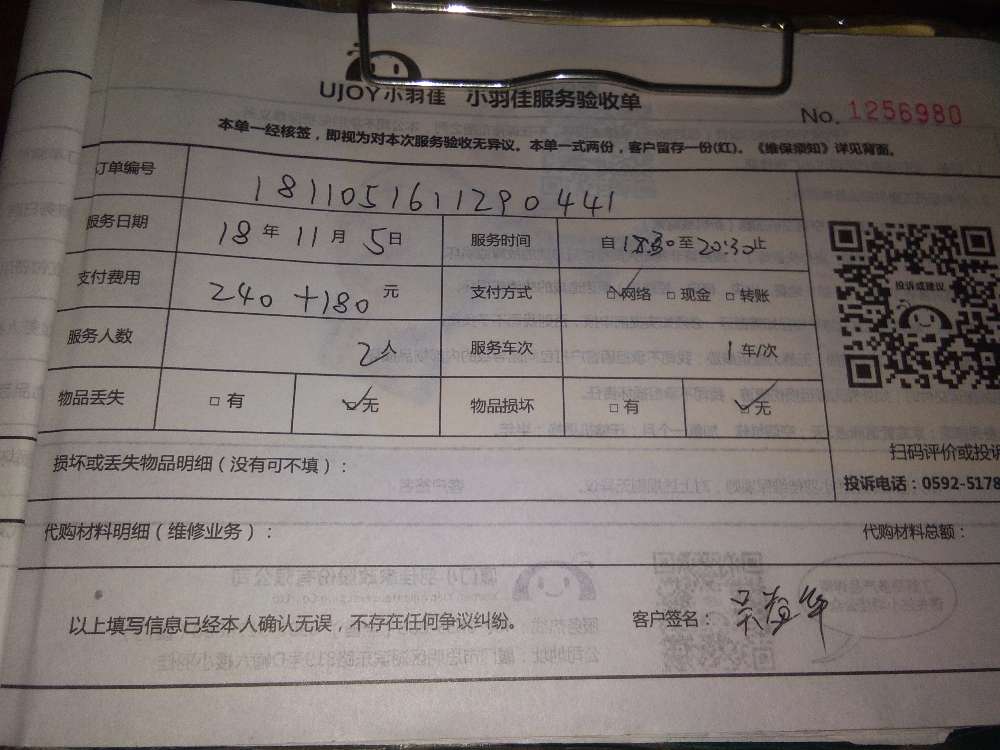 UJOY小羽佳 小羽佳服务验收单
No. 1256980
本单一经核签，即视为对本次服务验收无异议。本单一式两份，客户留存一份(红)。《维保须知》详见背面。
订单编号 1811051611290441
服务日期 18年11月5日 服务时间 自18:30至20:30止
支付费用 240+180元 支付方式 ☑网络 □现金 □转账
服务人数 2人 服务车次 1车/次
物品丢失 □有 ☑无 物品损坏 □有 ☑无
投诉或建议
扫码评价或投诉
投诉电话：0592-5178
损坏或丢失物品明细（没有可不填）：
代购材料明细（维修业务）： 代购材料总额：
以上填写信息已经本人确认无误，不存在任何争议纠纷。 客户签名：